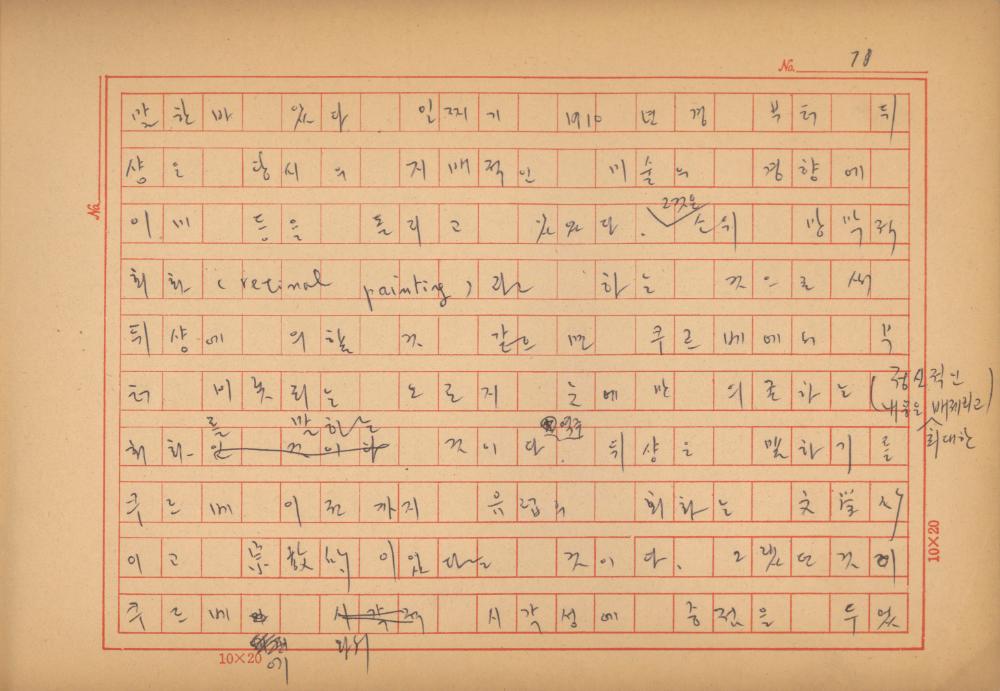 No. 78
말한바 있다 일찌기 1910년경 부터 뒤
샹은 당시의 지배적인 미술의 경향에
그것은
이미 등을 돌리고 있었다. 소위 망막적
회화 (retinal painting) 라는 하는 것으로서
뒤샹에 의할 것 같으면 쿠르베에서 부
터 비롯되는 오로지 눈에만 의존하는 (정신적인
내용을 배제하고
를 말하는
회화인 것이다 것이다. 뒤샹은 말하기를
최대한
쿠르베 이전까지 유럽의 회화는 文學的
이고 宗敎的 이었다는 것이다. 그랬던 것이
쿠르베 시각적 시각성에 중점을 두었
에 와서
No.
10×20
10×20